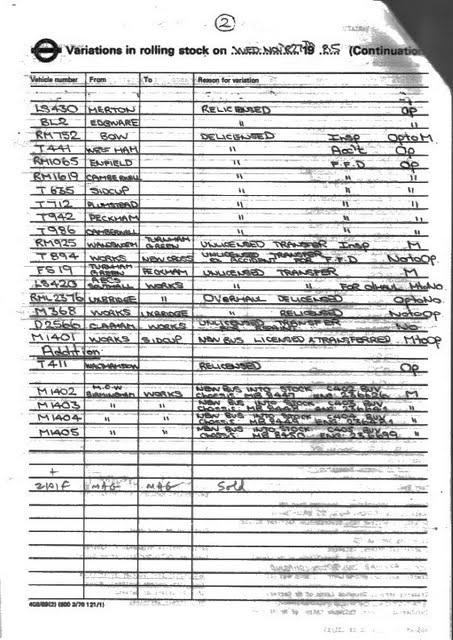 2
Variations in rolling stock on WED. NOV. 27TH 19 85 (Continuation
Vehicle number From To Reason for variation
LS430 MERTON RELICENSED Op
BL2 EDGWARE " "
RM752 BOW DELICENSED Insp Op to M.
T441 WEST HAM " Acc't Op
RM1065 ENFIELD " F.F.D Op
RM1619 CAMBERWELL " " "
T635 SIDCUP " " "
T712 PLUMSTEAD " " "
T942 PECKHAM " " "
T986 CAMBERWELL " " "
RM925 WANDSWORTH TURNHAM GREEN UNLICENSED TRANSFER Insp M
T894 WORKS NEW CROSS UNLICENSED TRANSFER EX ACCIDENT FOR F.F.D No to Op
FS19 TURNHAM GREEN PECKHAM UNLICENSED TRANSFER M
LS420 SOUTHALL WORKS " " FOR O/HAUL M to No.
RML2376 UXBRIDGE " OVERHAUL DELICENSED Op to No.
M368 WORKS UXBRIDGE " RELICENSED No to Op
D2566 CLAPHAM WORKS UNLICENSED TRANSFER No
M1401 WORKS SIDCUP NEW BUS LICENSED & TRANSFERRED M to Op
Addition
T411 WALTHAMSTOW RELICENSED Op
M1402 M.C.W BIRMINGHAM WORKS NEW BUS INTO STOCK C402 BUV M
CHASSIS: MB 8447 ENG:
M1403 " " NEW BUS INTO STOCK C403 BUV "
CHASSIS: ENG:
M1404 " " NEW BUS INTO STOCK C404 BUV "
CHASSIS: ENG:
M1405 " " NEW BUS INTO STOCK C405 BUV "
CHASSIS: MB 8450 ENG:
+
2101F MAG MAG Sold